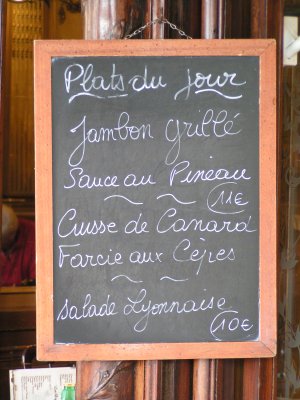 Plats du jour
Jambon grillé
Sauce au Pineau
11€
Cuisse de Canard
Farcie aux Cèpes
salade Lyonnaise
10€